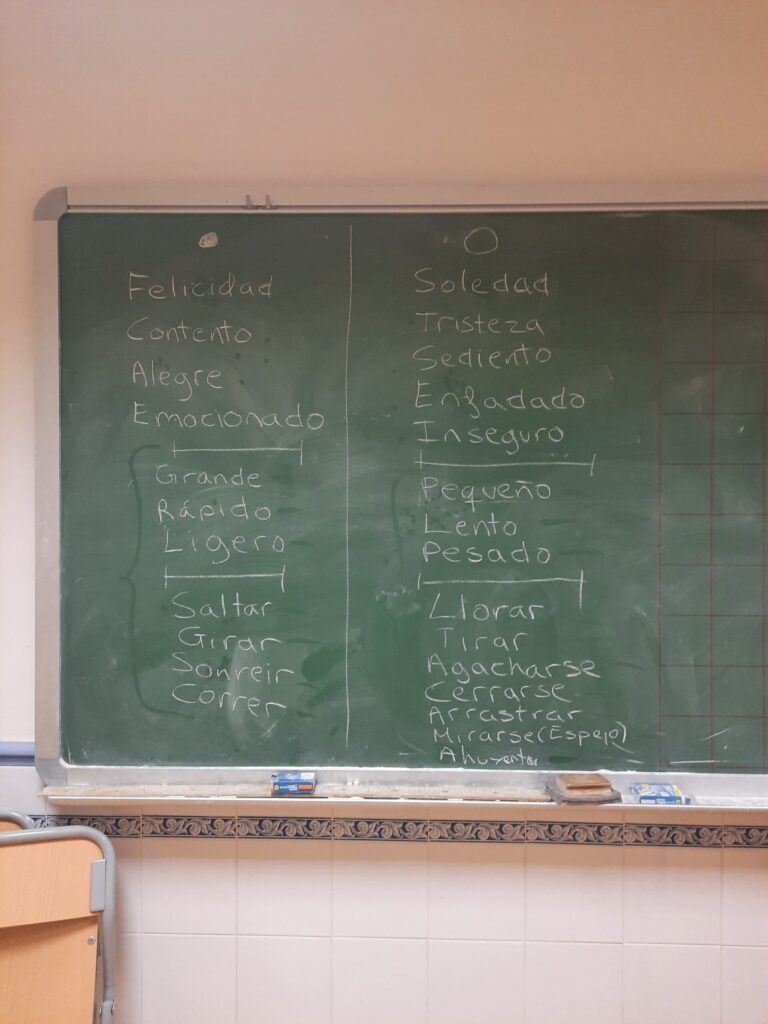 Felicidad
Contento
Alegre
Emocionado
Grande
Rápido
Ligero
Saltar
Girar
Sonreir
Correr
Soledad
Tristeza
Sediento
Enfadado
Inseguro
Pequeño
Lento
Pesado
Llorar
Tirar
Agacharse
Cerrarse
Arrastrar
Mirarse (Espejo)
Ahuyentar